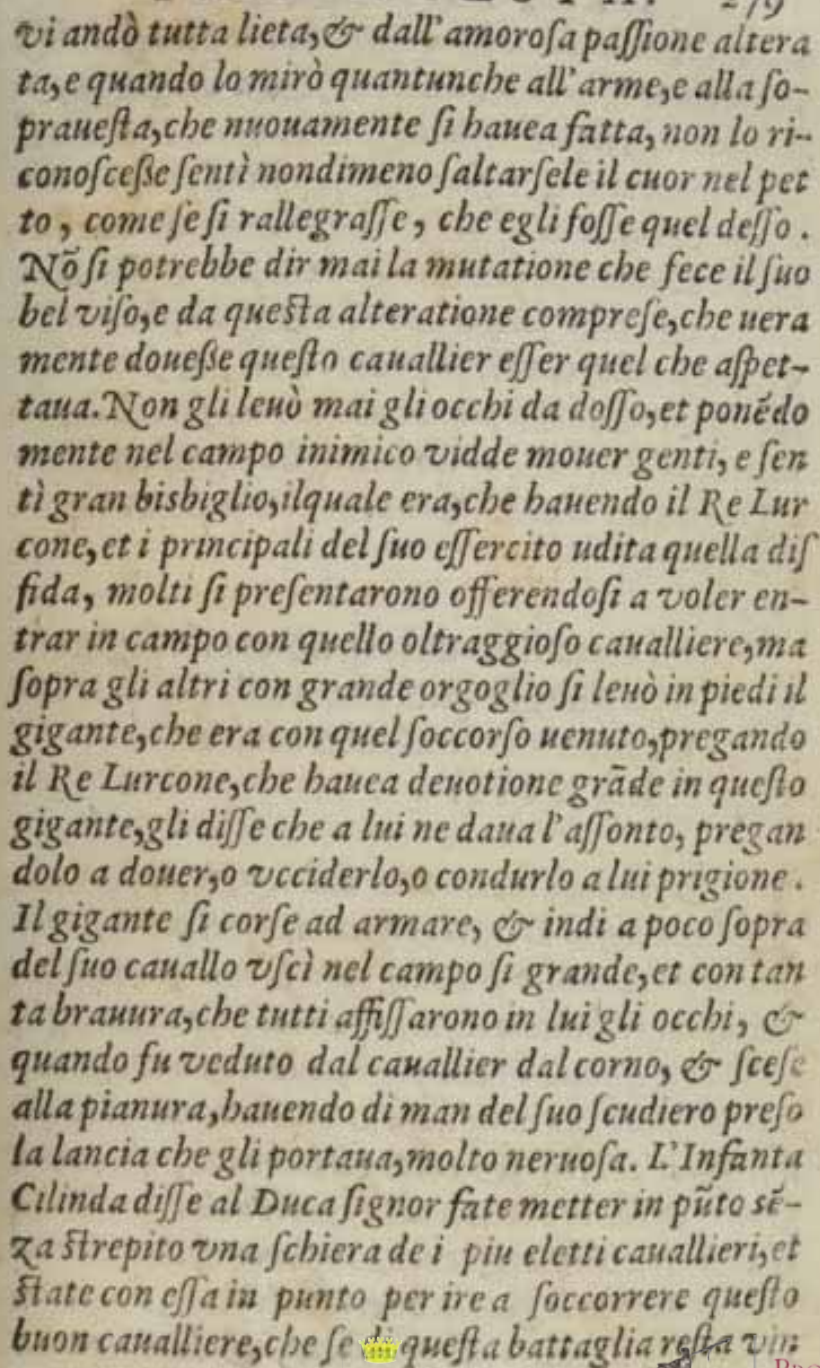 279
vi andò tutta lieta,& dall'amoroſa paſſione altera
ta,e quando lo mirò quantunche all'arme,e alla ſo-
praueſta,che nuouamente ſi hauea fatta, non lo ri-
conoſceße ſentì nondimeno ſaltarſele il cuor nel pet
to, come ſe ſi rallegraſſe, che egli foſſe quel deſſo.
Nõ ſi potrebbe dir mai la mutatione che fece il ſuo
bel viſo,e da queſta alteratione compreſe,che uera
mente doueße queſto cauallier eſſer quel che aſpet-
taua.Non gli leuò mai gli occhi da doſſo,et ponẽdo
mente nel campo inimico vidde mouer genti, e ſen
tì gran bisbiglio,ilquale era,che hauendo il Re Lur
cone,et i principali del ſuo eſſercito udita quella diſ
fida, molti ſi preſentarono offerendoſi a voler en-
trar in campo con quello oltraggioſo caualliere,ma
ſopra gli altri con grande orgoglio ſi leuò in piedi il
gigante,che era con quel ſoccorſo uenuto,pregando
il Re Lurcone,che hauea deuotione grãde in queſto
gigante,gli diſſe che a lui ne daua l'aſſonto, pregan
dolo a douer,o vcciderlo,o condurlo a lui prigione.
Il gigante ſi corſe ad armare, & indi a poco ſopra
del ſuo cauallo vſcì nel campo ſi grande,et con tan
ta brauura,che tutti affiſſarono in lui gli occhi, &
quando fu veduto dal cauallier dal corno, & ſceſe
alla pianura,hauendo di man del ſuo ſcudiero preſo
la lancia che gli portaua,molto neruoſa. L'Infanta
Cilinda diſſe al Duca ſignor fate metter in pũto sẽ-
za ſtrepito vna ſchiera de i piu eletti cauallieri,et
ſtate con eſſa in punto per ire a ſoccorrere queſto
buon caualliere,che ſe di queſta battaglia reſta vin